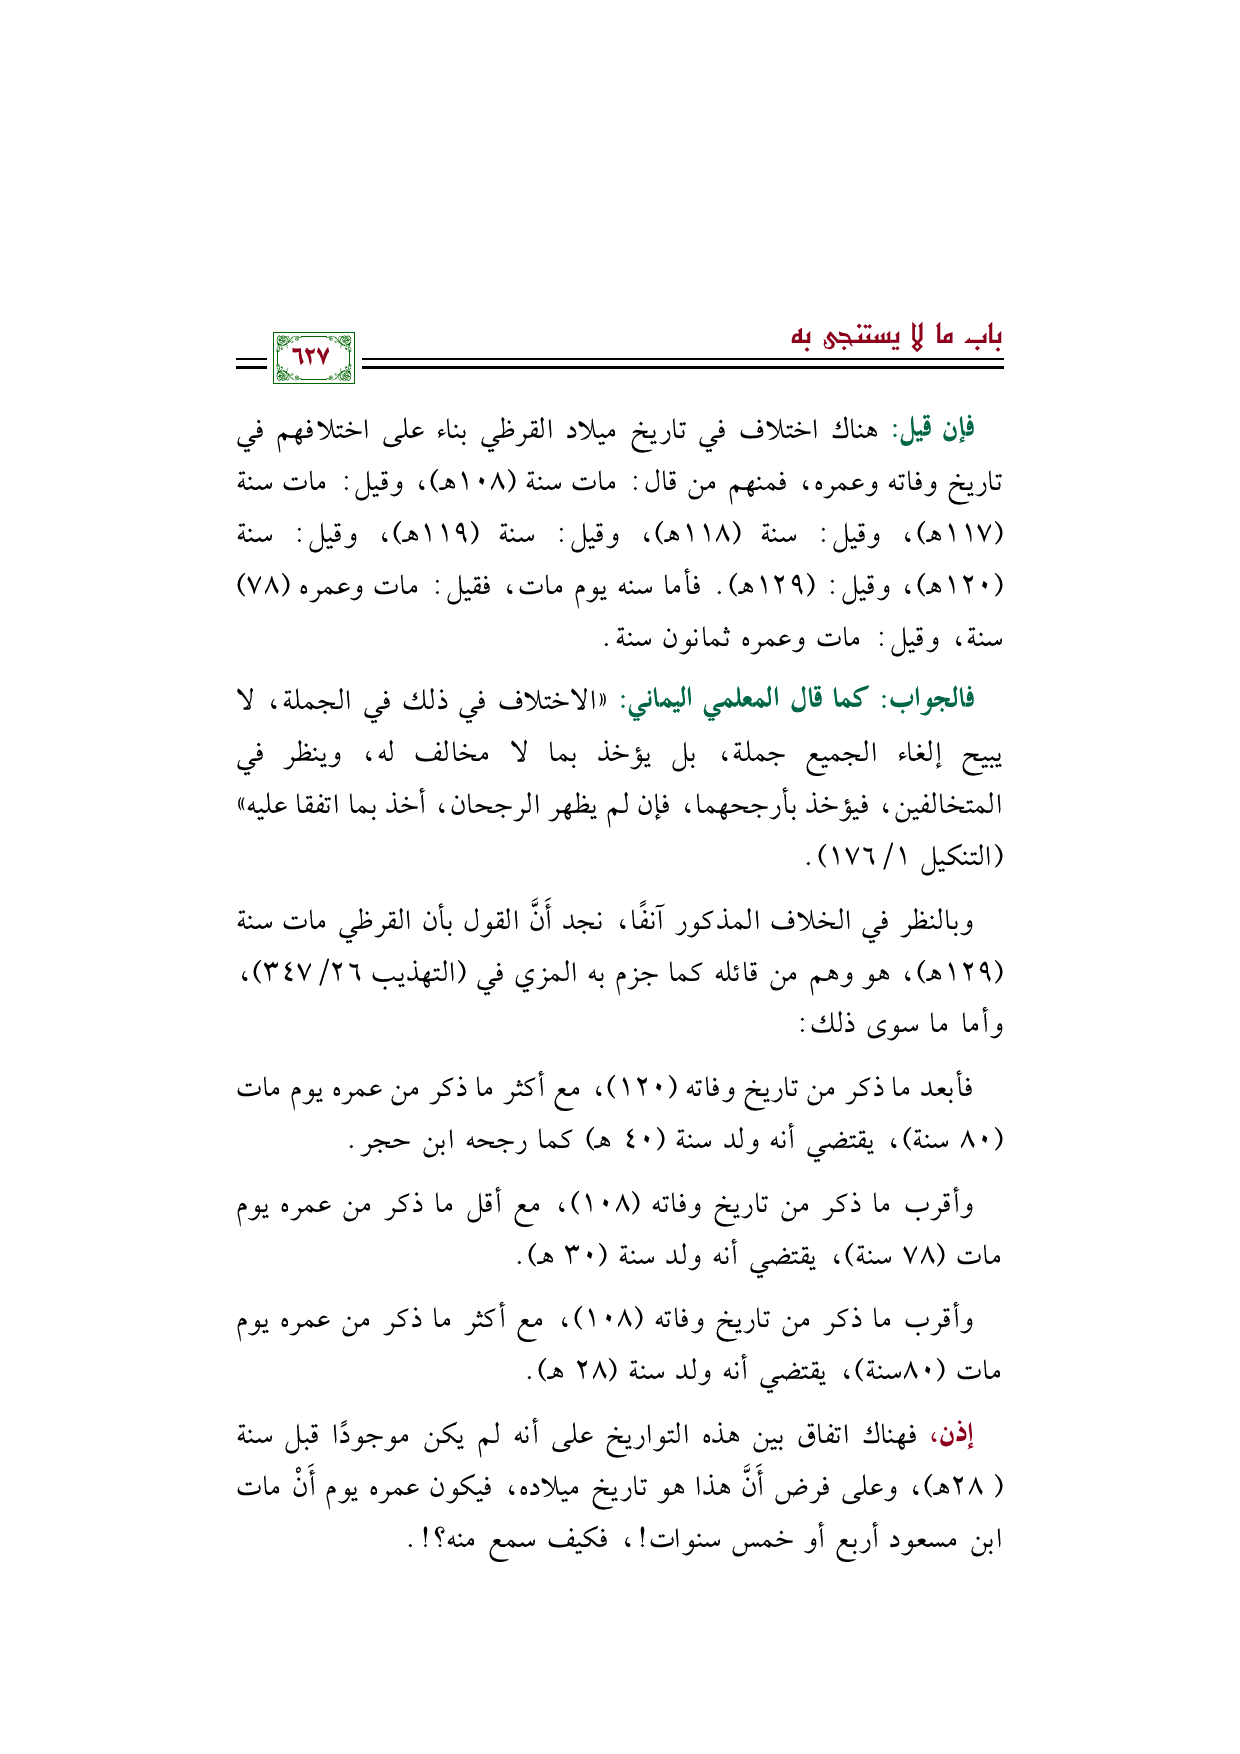 باب ما لا يستنجى به
٦٢٧
فإن قيل: هناك اختلاف في تاريخ ميلاد القرظي بناء على اختلافهم في
تاريخ وفاته وعمره، فمنهم من قال: مات سنة (١٠٨هـ)، وقيل: مات سنة
(١١٧هـ)، وقيل: سنة (١١٨هـ)، وقيل: سنة (١١٩هـ)، وقيل: سنة
(١٢٠هـ)، وقيل: (١٢٩هـ). فأما سنه يوم مات، فقيل: مات وعمره (٧٨)
سنة، وقيل: مات وعمره ثمانون سنة.
فالجواب: كما قال المعلمي اليماني: «الاختلاف في ذلك في الجملة، لا
يبيح إلغاء الجميع جملة، بل يؤخذ بما لا مخالف له، وينظر في
المتخالفين، فيؤخذ بأرجحهما، فإن لم يظهر الرجحان، أخذ بما اتفقا عليه»
(التنكيل ١/ ١٧٦).
وبالنظر في الخلاف المذكور آنفًا، نجد أَنَّ القول بأن القرظي مات سنة
(١٢٩هـ)، هو وهم من قائله كما جزم به المزي في (التهذيب ٢٦/ ٣٤٧)،
وأما ما سوى ذلك:
فأبعد ما ذكر من تاريخ وفاته (١٢٠)، مع أكثر ما ذكر من عمره يوم مات
(٨٠ سنة)، يقتضي أنه ولد سنة (٤٠ هـ) كما رجحه ابن حجر.
وأقرب ما ذكر من تاريخ وفاته (١٠٨)، مع أقل ما ذكر من عمره يوم
مات (٧٨ سنة)، يقتضي أنه ولد سنة (٣٠ هـ).
وأقرب ما ذكر من تاريخ وفاته (١٠٨)، مع أكثر ما ذكر من عمره يوم
مات (٨٠سنة)، يقتضي أنه ولد سنة (٢٨ هـ).
إذن، فهناك اتفاق بين هذه التواريخ على أنه لم يكن موجودًا قبل سنة
( ٢٨هـ)، وعلى فرض أَنَّ هذا هو تاريخ ميلاده، فيكون عمره يوم أَنْ مات
ابن مسعود أربع أو خمس سنوات!، فكيف سمع منه؟!.